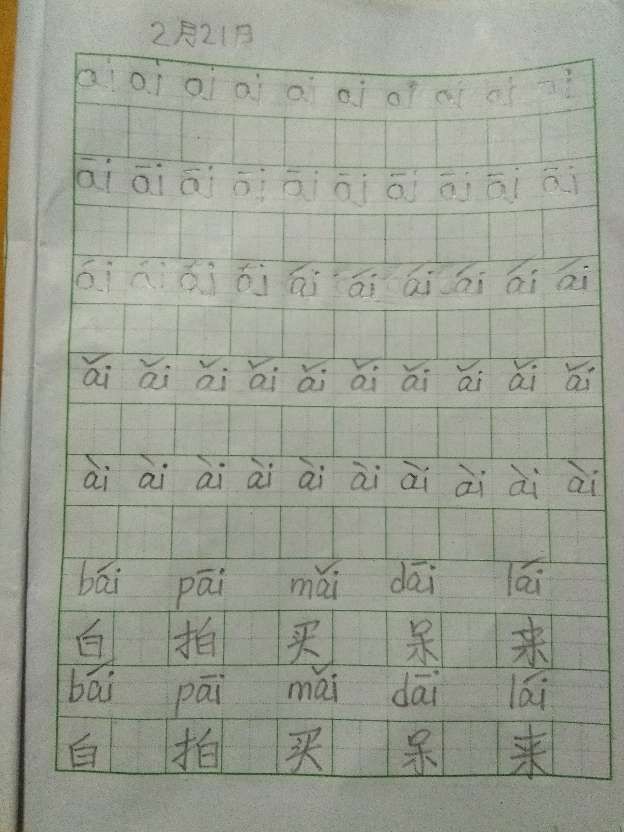 2月21日
ai ai ai ai ai ai ai ai ai ai
āi āi āi āi āi āi āi āi āi āi
ái ái ái ái ái ái ái ái ái ái
ǎi ǎi ǎi ǎi ǎi ǎi ǎi ǎi ǎi ǎi
ài ài ài ài ài ài ài ài ài ài
bái pāi mǎi dāi lái
白 拍 买 呆 来
bái pāi mǎi dāi lái
白 拍 买 呆 来